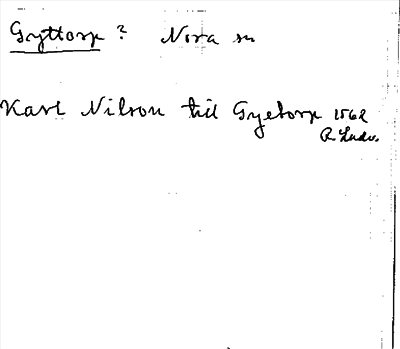 Gyttorp ? Nora sn
Karl Nilson till Gyetorp 1562
R